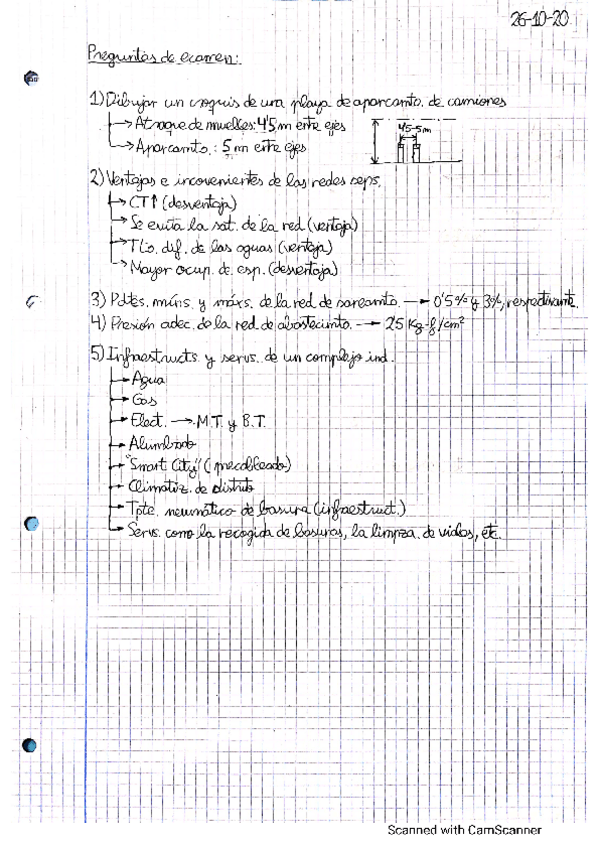 26-10-20
Preguntas de examen:
1) Dibujar un croquis de una playa de aparcamto. de camiones
→ Atraque de muelles: 4'5 m entre ejes
4'5-5 m
→ Aparcamto.: 5 m entre ejes
2) Ventajas e incovenientes de las redes seps.
→ CT↑ (desventaja)
→ Se evita la sat. de la red (ventaja)
→ Tto. dif. de las aguas (ventaja)
→ Mayor ocup. de esp. (desventaja)
3) Pdtes. míns. y máxs. de la red de saneamto. → 0'5% y 3%, respectivamte.
4) Presión adec. de la red de abastecimto. → 25 Kg-f/cm²
5) Infraestructs. y servs. de un complejo ind.
→ Agua
→ Gas
→ Elect. → M.T. y B.T.
→ Alumbrado
→ "Smart City" (precableado)
→ Climatiz. de distrito
→ Tpte. neumático de basura (infraestruct.)
→ Servs. como la recogida de basuras, la limpza. de viales, etc.
Scanned with CamScanner